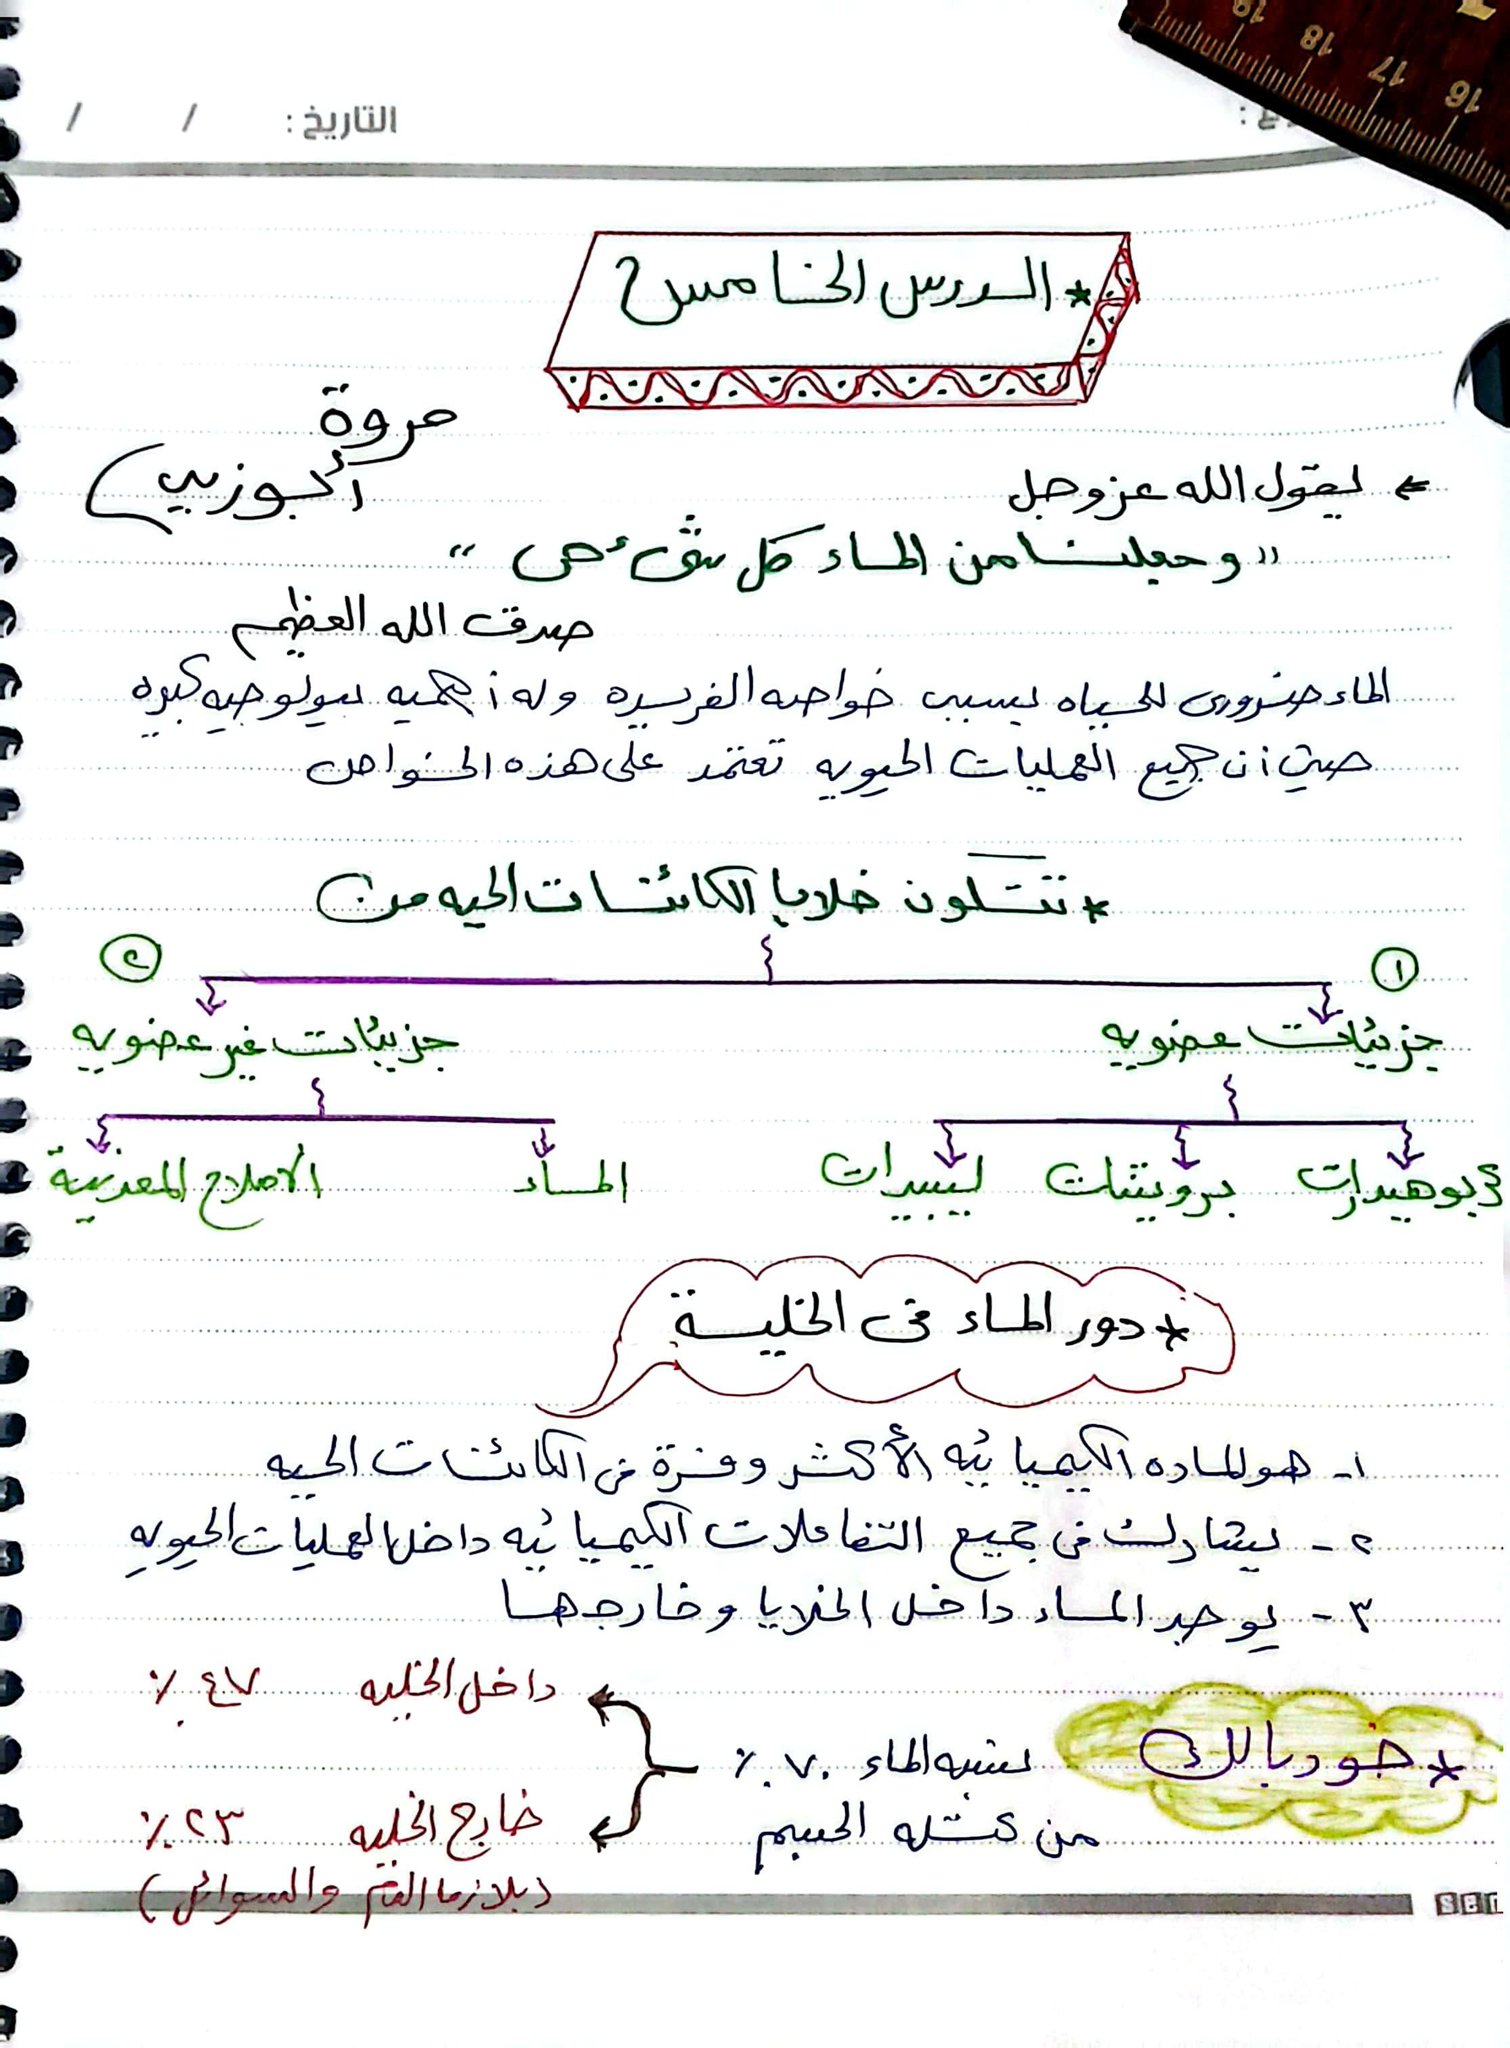 التاريخ: / /
* الدرس الخامس
مروة
أبوزيد
← يقول الله عز وجل
" وجعلنا من الماء كل شىء حى "
صدق الله العظيم
الماء ضرورى للحياه بسبب خواصه الفريده وله أهميه بيولوجيه كبيره
حيث أن جميع العمليات الحيويه تعتمد على هذه الخواص
* تتكون خلايا الكائنات الحيه من
١ ٢
جزيئات عضويه جزيئات غير عضويه
كربوهيدرات بروتينات ليبيدات الماء الأملاح المعدنية
* دور الماء فى الخلية
١- هو الماده الكيميائيه الأكثر وفرة فى الكائنات الحيه
٢- يشارك فى جميع التفاعلات الكيميائيه داخل العمليات الحيويه
٣- يوجد الماء داخل الخلايا وخارجها
* خود بالك
نسبه الماء ٧٠٪
من كتله الجسم
داخل الخليه ٤٧٪
خارج الخليه ٢٣٪
(بلازما الدم والسوائل)
16 17 18 19